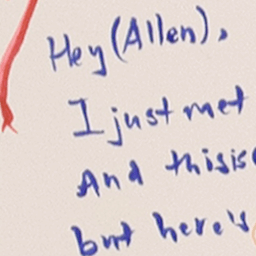 Hey (Allen),
I just met
And thisis
but here's